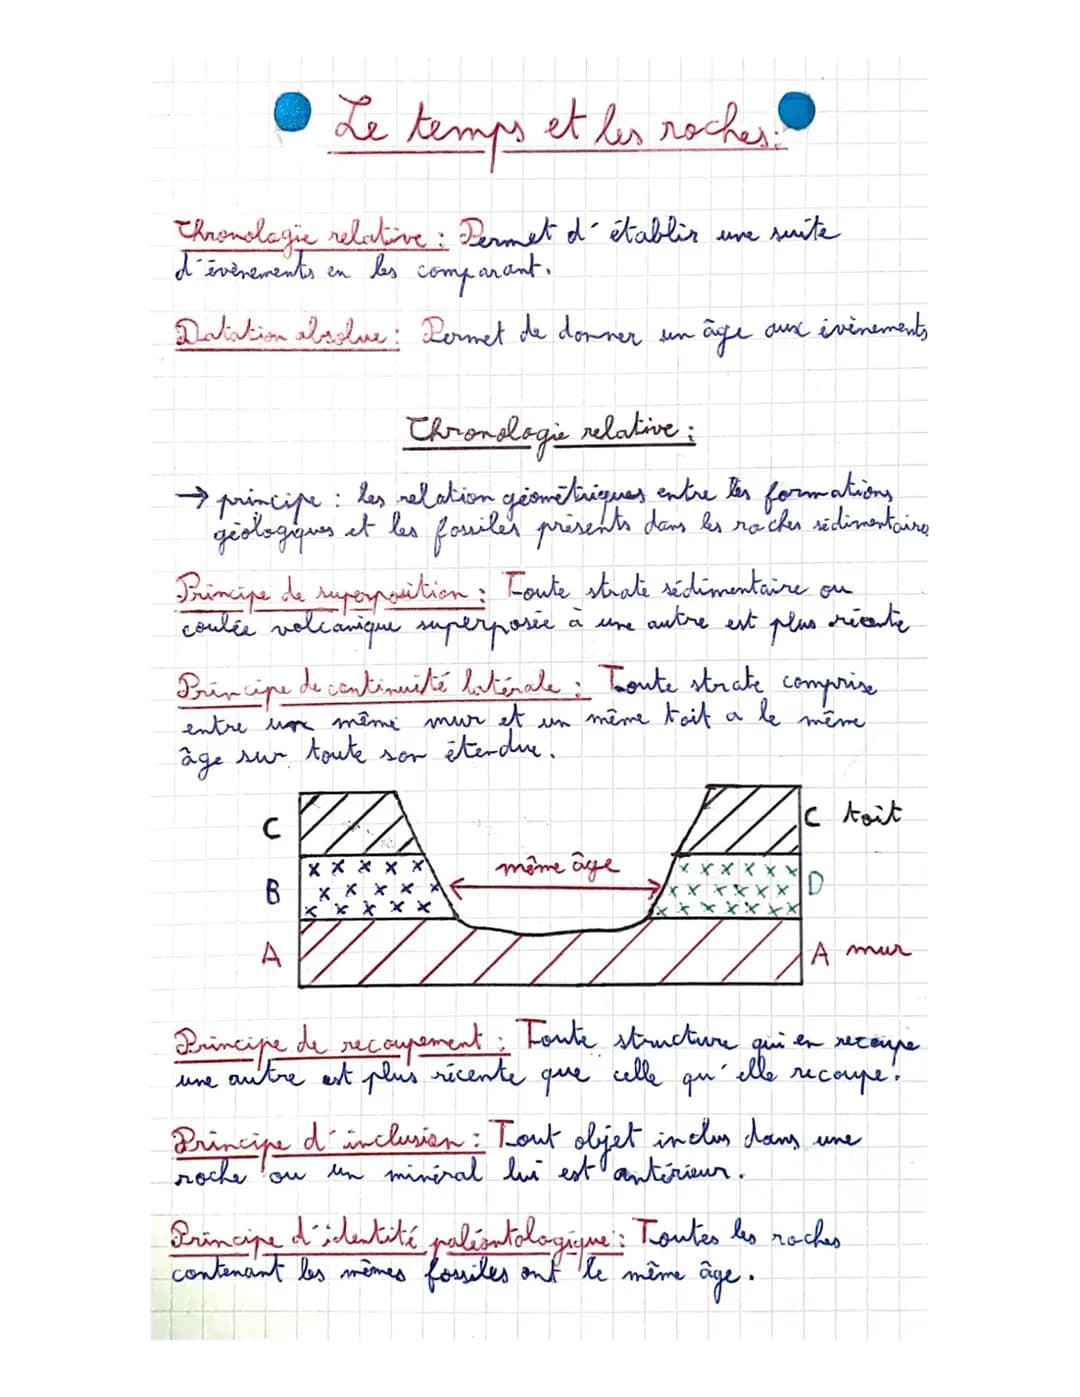 Le temps et les roches :
Chronologie relative : Permet d'établir une suite
d'évènements en les comparant.
Datation absolue : Permet de donner un âge aux évènements
Chronologie relative :
→ principe : les relation géométriques entre les formations
géologiques et les fossiles présents dans les roches sédimentaires
Principe de superposition : Toute strate sédimentaire ou
coulée volcanique superposée à une autre est plus récente
Principe de continuité latérale : Toute strate comprise
entre un même mur et un même toit a le même
âge sur toute son étendue.
C C toit
même âge
B D
A A mur
Principe de recoupement : Toute structure qui en recoupe
une autre est plus récente que celle qu'elle recoupe.
Principe d'inclusion : Tout objet inclus dans une
roche ou un minéral lui est antérieur.
Principe d'identité paléontologique : Toutes les roches
contenant les mêmes fossiles ont le même âge.